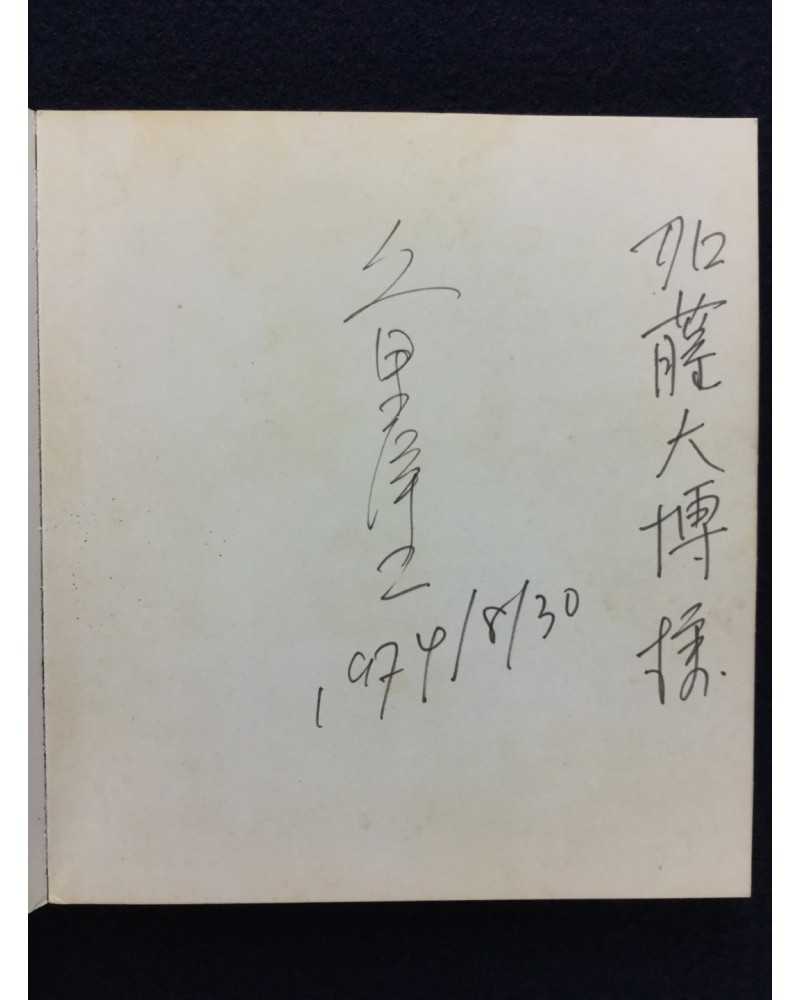 加藤大博様
久里洋二
1974/8/30